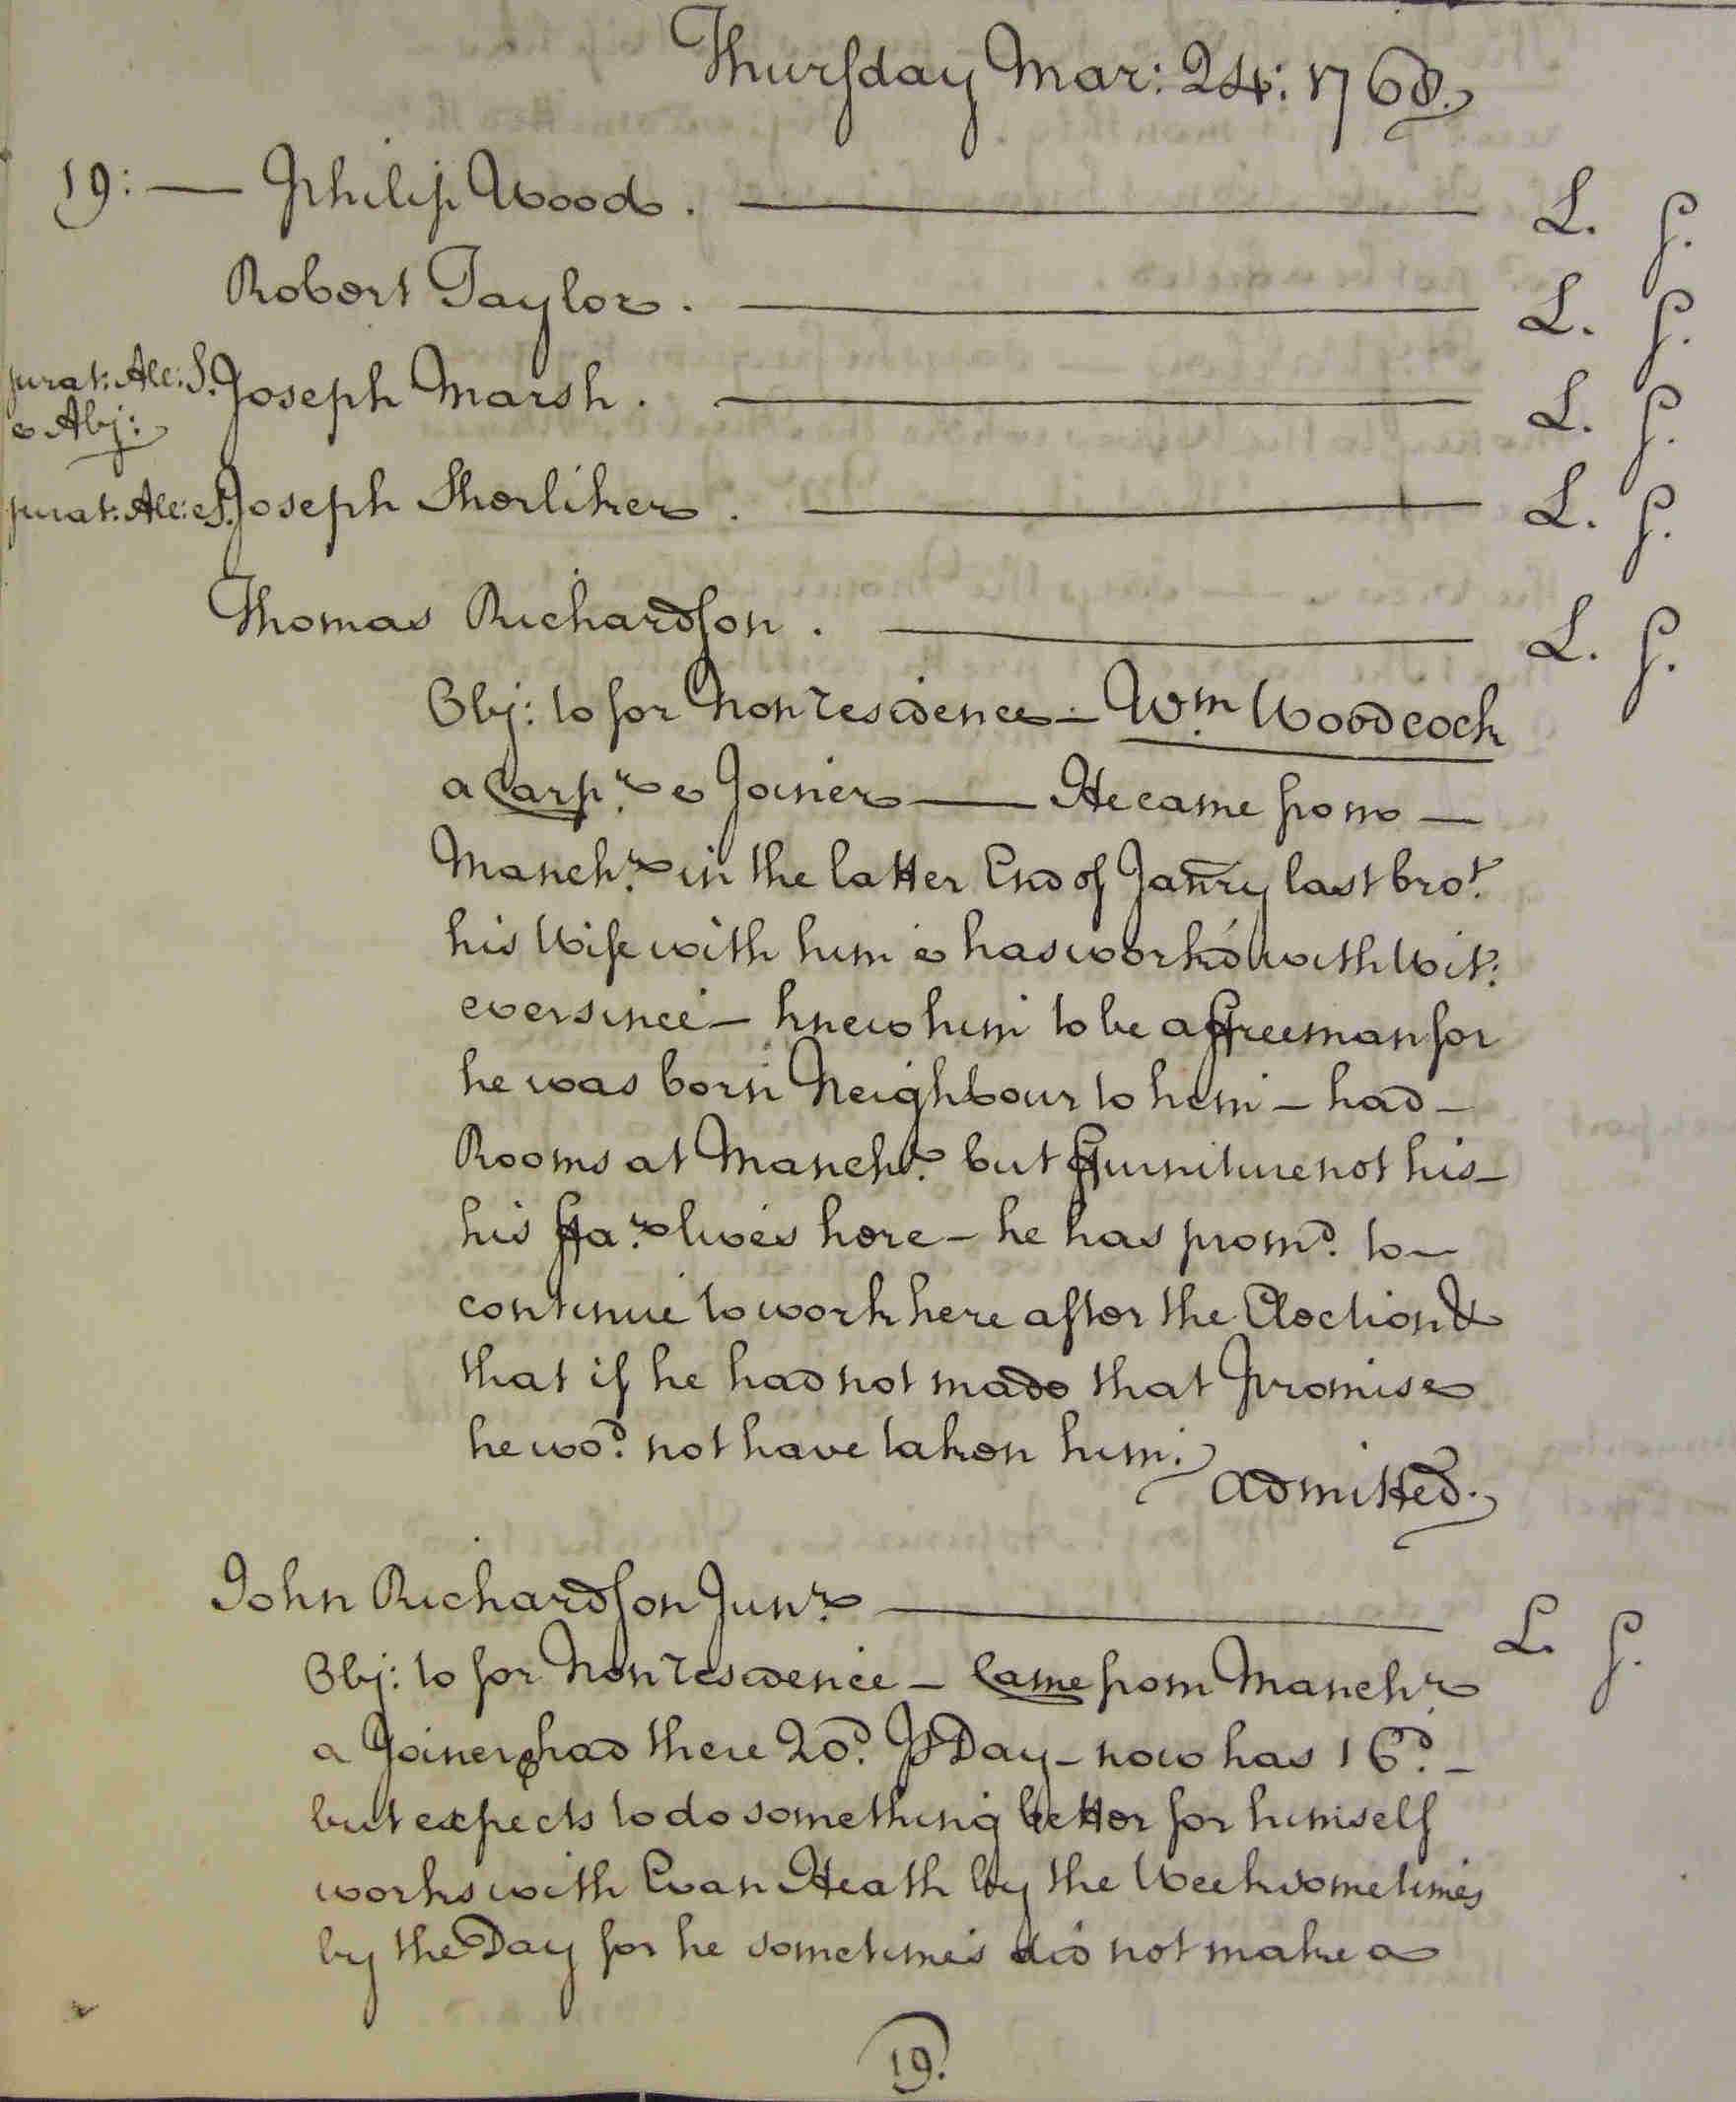 Thursday Mar: 24: 1768.
19: — Philip Wood. — L. S.
Robert Taylor. — L. S.
jurat: All: S. Joseph Marsh. — L. S.
& Abj:
jurat: All: S. Joseph Shorliker. — L. S.
Thomas Richardson. — L. S.
Obj: to for Nonresidence — Wm Woodcock
a Carpr & Joiner — He came from —
Manchr in the latter End of Janry last brot
his Wife with him & has workd with Wit:
ever since — knew him to be a ffreeman for
he was born Neighbour to him — had —
Rooms at Manchr but ffurniture not his —
his ffar lives here — he has promd to —
continue to work here after the Election &
that if he had not made that Promise
he wod not have taken him.
admitted.
John Richardson Junr — L. S.
Obj: to for Nonresidence — Came from Manchr
a Joiner & had there 20d P Day — now has 16d —
but expects to do something better for himself
works with Evan Heath by the Week sometimes
by the Day for he sometimes did not make a
19.